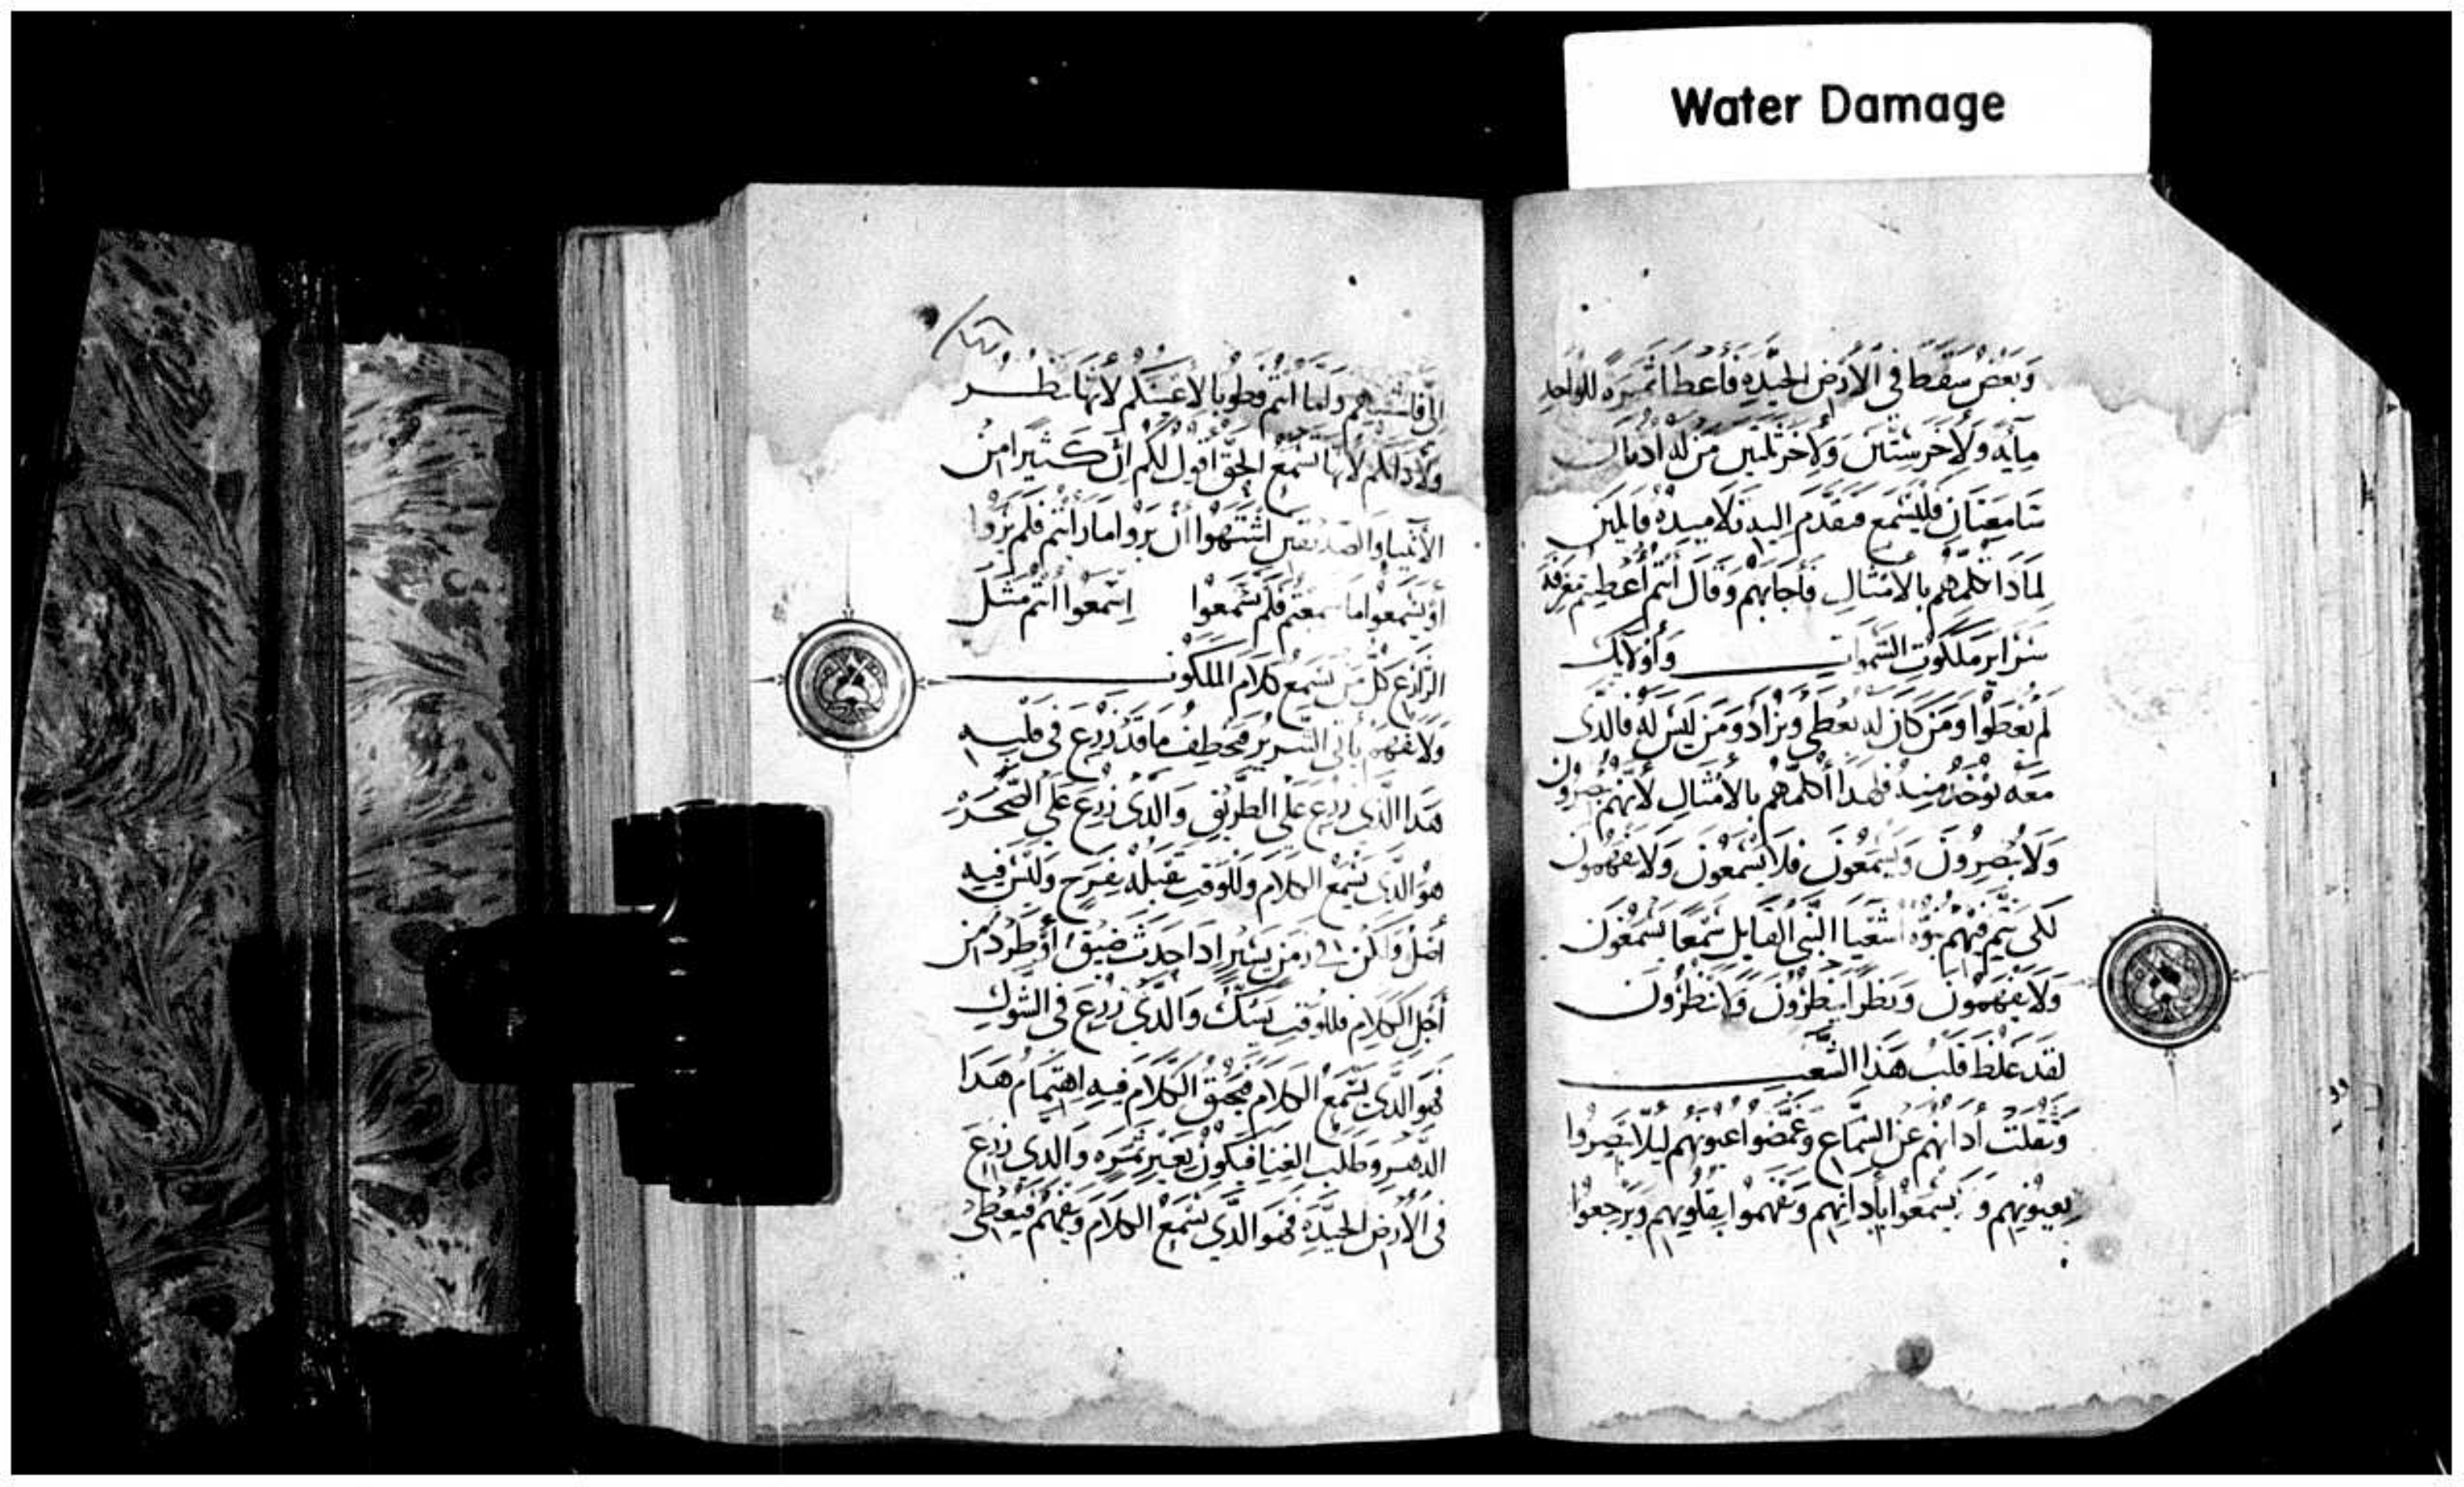 Water Damage
وَبَعضٌ سَقَطَ فى الارض الجيّده فأعطا ثمره للواحد
مايه ولاخر ستين ولاخر ثلثين من له ادنان
سامعتان فليسمع فتقدم اليه تلاميده قايلين
لمادا تكلمهم بالامثال فأجابهم وقال أنتم أعطيتم معرفة
سراير ملكوت السموات وأولايك
لم يعطوا ومن كان له يعطى ويزاد ومن ليس له فالدى
معه يوخد منه فلهدا أكلمهم بالامثال لانهم يبصرون
ولا يبصرون ويسمعون فلا يسمعون ولا يفهمون
لكى يتم فيهم نبوّه اشعيا النبى القايل سمعا يسمعون
ولا يفهمون ونظرا ينظرون ولا ينظرون
لقد غلظ قلب هذا الشعب
وثقلت أدانهم عن السماع وغمضوا عيونهم ليلا يبصروا
بعيونهم و يسمعوا بأدانهم ويفهموا بقلوبهم ويرجعوا
الىّ فاشفيهم واما انتم فطوبا لاعينكم لانها تنظر
ولادانكم لانها تسمع الحق اقول لكم ان كثيرا من
الأنبيا والصديقين اشتهوا أن يروا ما رأيتم فلم يروا
أو يسمعوا ما سمعتم فلم يسمعوا اسمعوا انتم مثل
الزارع كل من يسمع كلام الملكوت
ولا يفهم يأتى الشرير فيخطف ما قد زرع فى قلبه
هدا الذى زرع على الطريق والدى زرع على الصخر
هو الدى يسمع الكلام وللوقت يقبله بفرح وليس فيه
أصل ولكن فى زمن يسير ادا حدث ضيق أو طرد من
أجل الكلام فللوقت يشك والدى زرع فى الشوك
فهو الدى يسمع الكلام فيخنق الكلام فيه اهتمام هدا
الدهر وطلب الغنا فيكون بغير ثمره والدى زرع
فى الارض الجيده فهو الدى يسمع الكلام ويفهم فيعطى